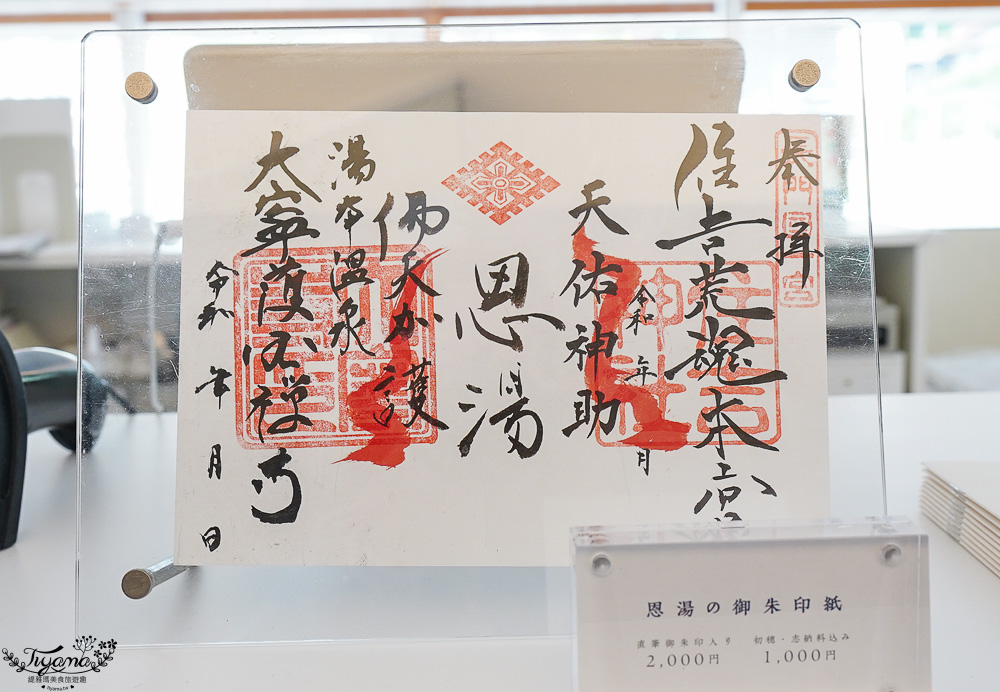 奉拝
住吉荒魂本宮
令和 年 月
天佑神助
恩湯
佛天加護
湯本温泉
大寧護国禅寺
令和 年 月 日
恩湯の御朱印紙
直筆御朱印入り 初穂・志納料込み
2,000円 1,000円
Tiyama
緹雅瑪美食旅遊趣
Tiyama.tw